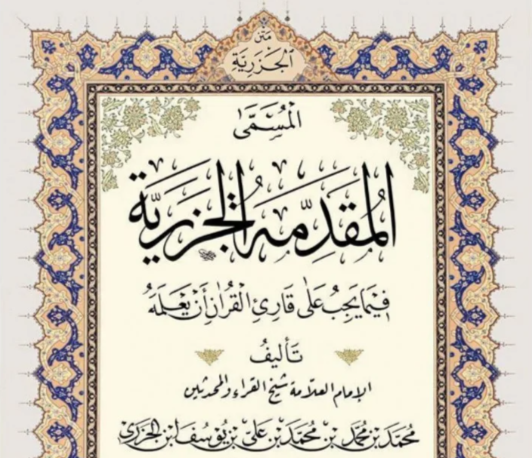 مَتْنُ
الْجَزَرِيَّة
الْمُسَمَّى
الْمُقَدِّمَةُ الْجَزَرِيَّة
فِيمَا يَجِبُ عَلَى قَارِئِ الْقُرْآنِ أَنْ يَعْلَمَهُ
تَأْلِيفُ
الإمام العلّامة شيخ القراء والمحدثين
مُحَمَّد بْنِ مُحَمَّد بْنِ مُحَمَّد بْنِ عَلِيّ بْنِ يُوسُفَ ابْنِ الْجَزَرِيّ